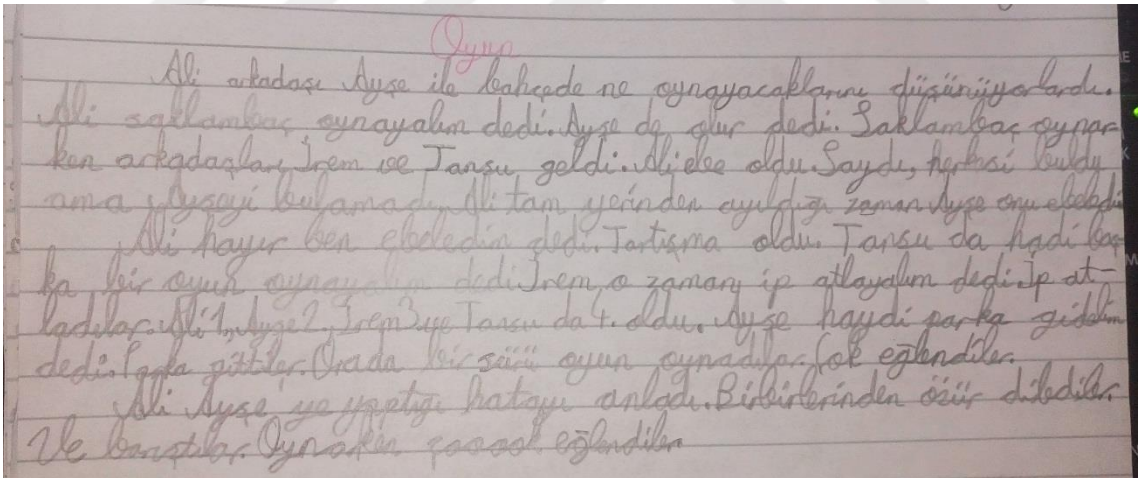 Oyun
Ali arkadaşı Ayşe ile bahçede ne oynayacaklarını düşünüyorlardı.
Ali saklambaç oynayalım dedi. Ayşe de olur dedi. Saklambaç oynar-
ken arkadaşları İrem ve Tansu geldi. Ali ebe oldu. Saydı, herkesi buldu
ama Ayşeyi bulamadı. Ali tam yerinden ayıldığı zaman Ayşe onu ebeledi
Ali hayır ben ebeledim dedi. Tartışma oldu. Tansu da hadi baş-
ka bir oyun oynayalım dedi. İrem, o zaman ip atlayalım dedi. İp at-
ladılar. Ali 1., Ayşe 2., İrem 3. ve Tansu da 4. oldu. Ayşe haydi parka gidelim
dedi. Parka gittiler. Orada bir sürü oyun oynadılar. Çok eğlendiler.
Ali Ayşe ye yaptığı hatayı anladı. Birbirlerinden özür dilediler.
Ve barıştılar. Oynarken çooook eğlendiler